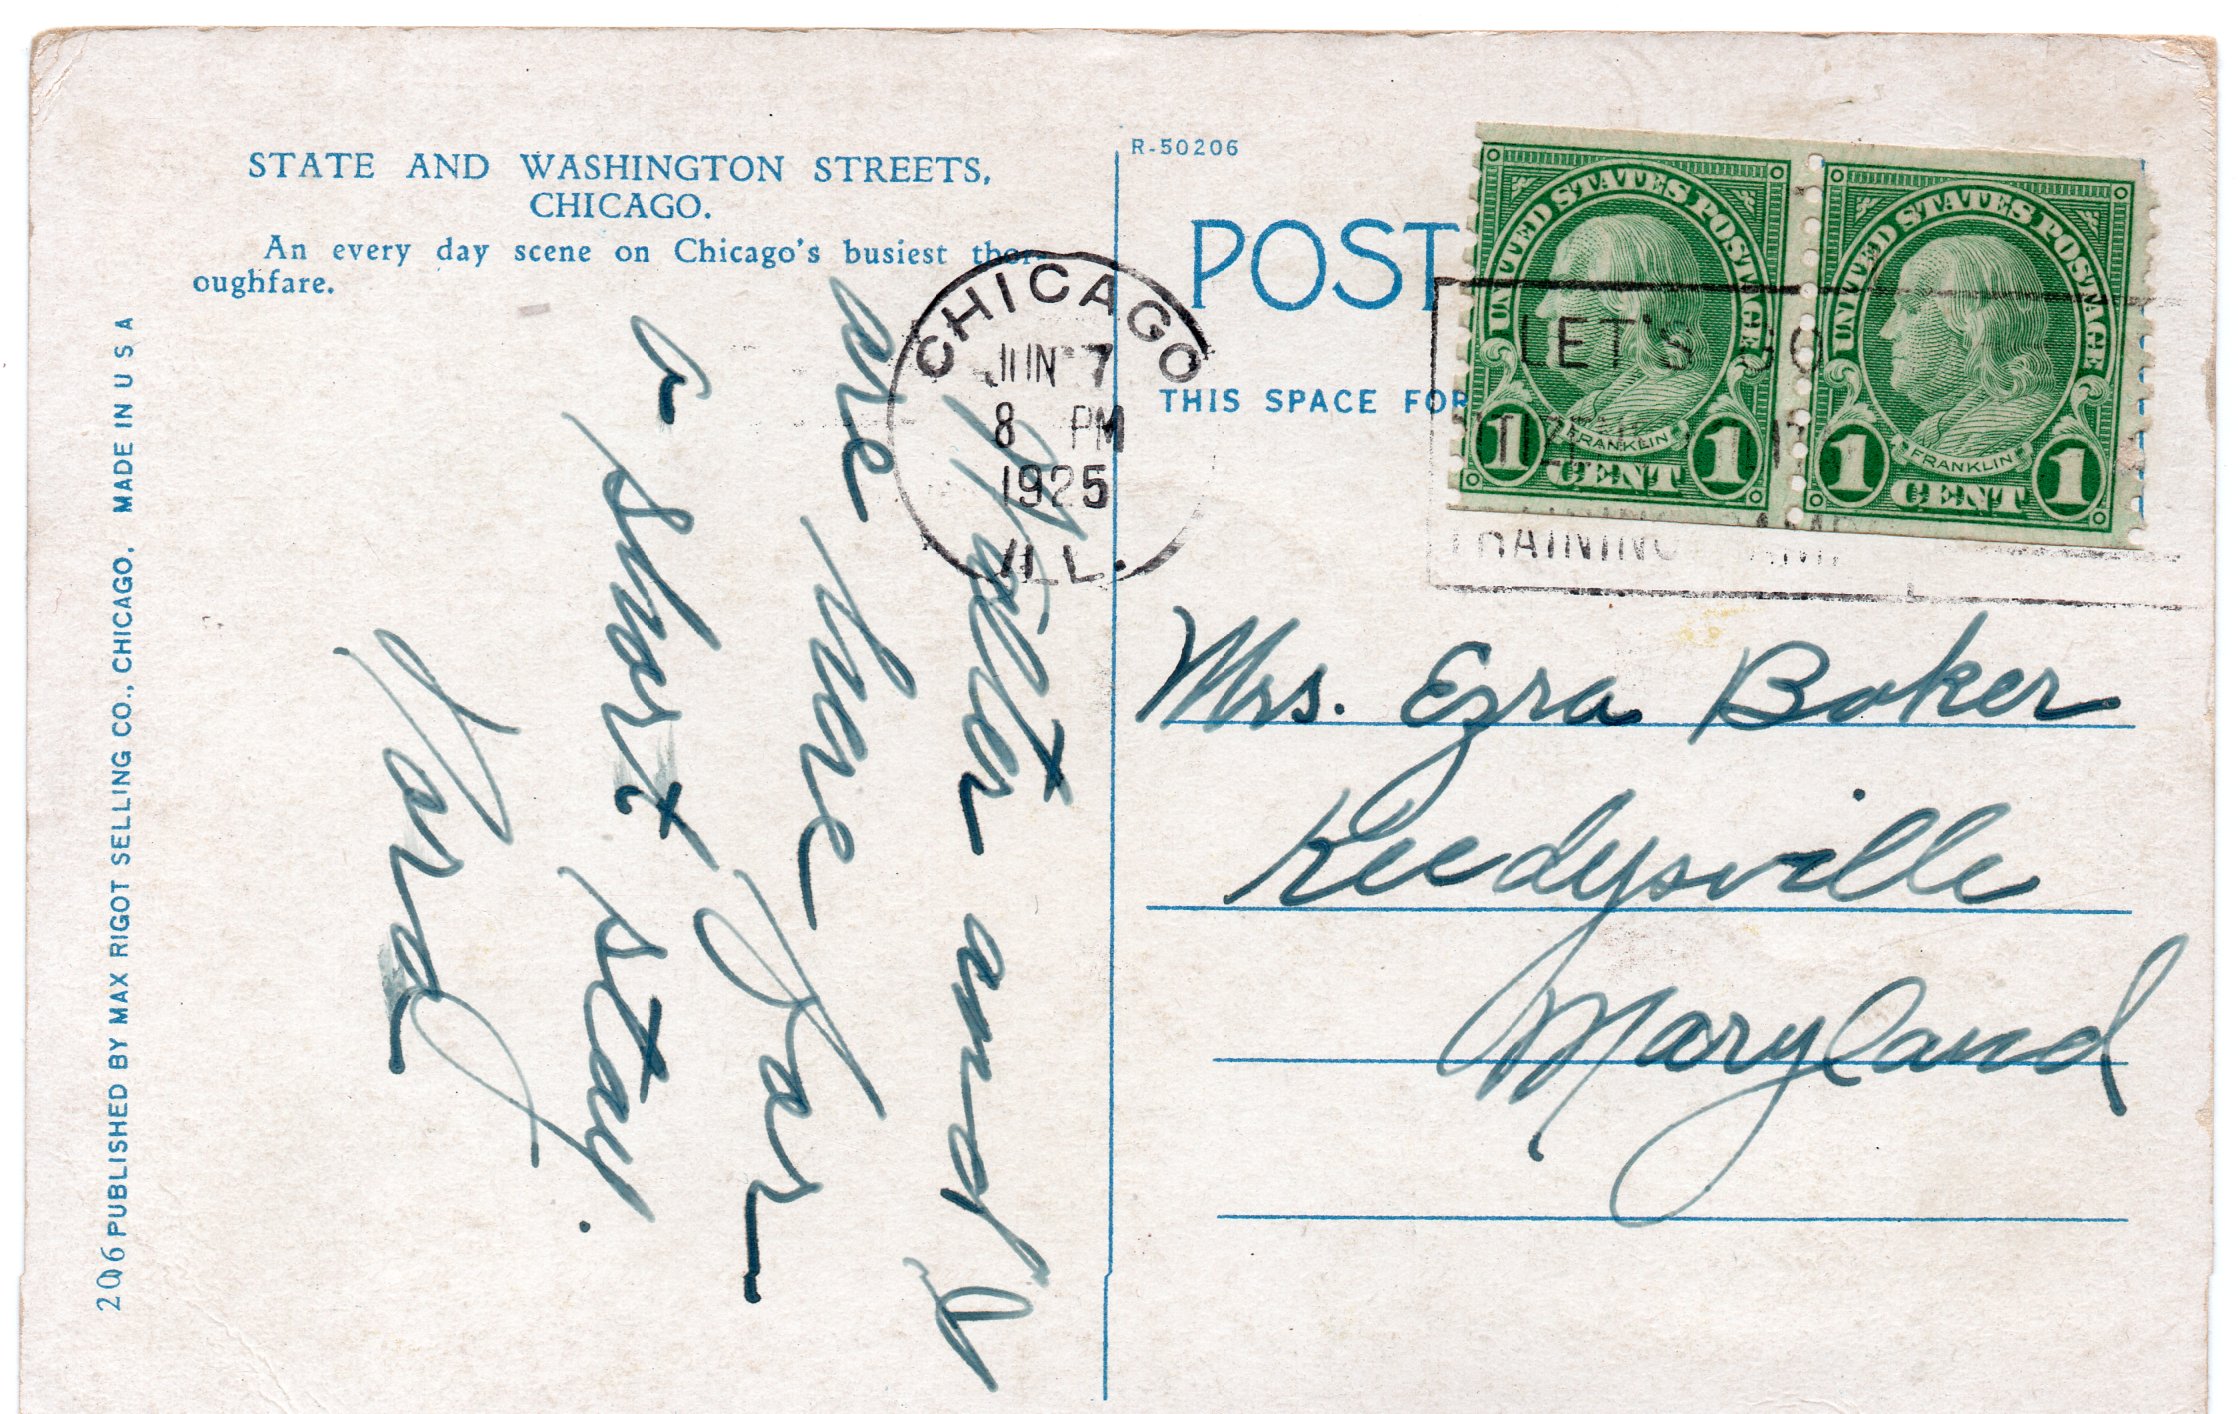 STATE AND WASHINGTON STREETS,
CHICAGO.
An every day scene on Chicago's busiest thor-
oughfare.
206 PUBLISHED BY MAX RIGOT SELLING CO., CHICAGO. MADE IN U S A
Walter and I
are here for
a short stay.
R-50206
POST
THIS SPACE FOR
CHICAGO
JUN 7
8 PM
1925
ILL.
LET'S GO
TRAINING CAMP
UNITED STATES POSTAGE
FRANKLIN
1 CENT 1
UNITED STATES POSTAGE
FRANKLIN
1 CENT 1
Mrs. Ezra Baker
Keedysville
Maryland